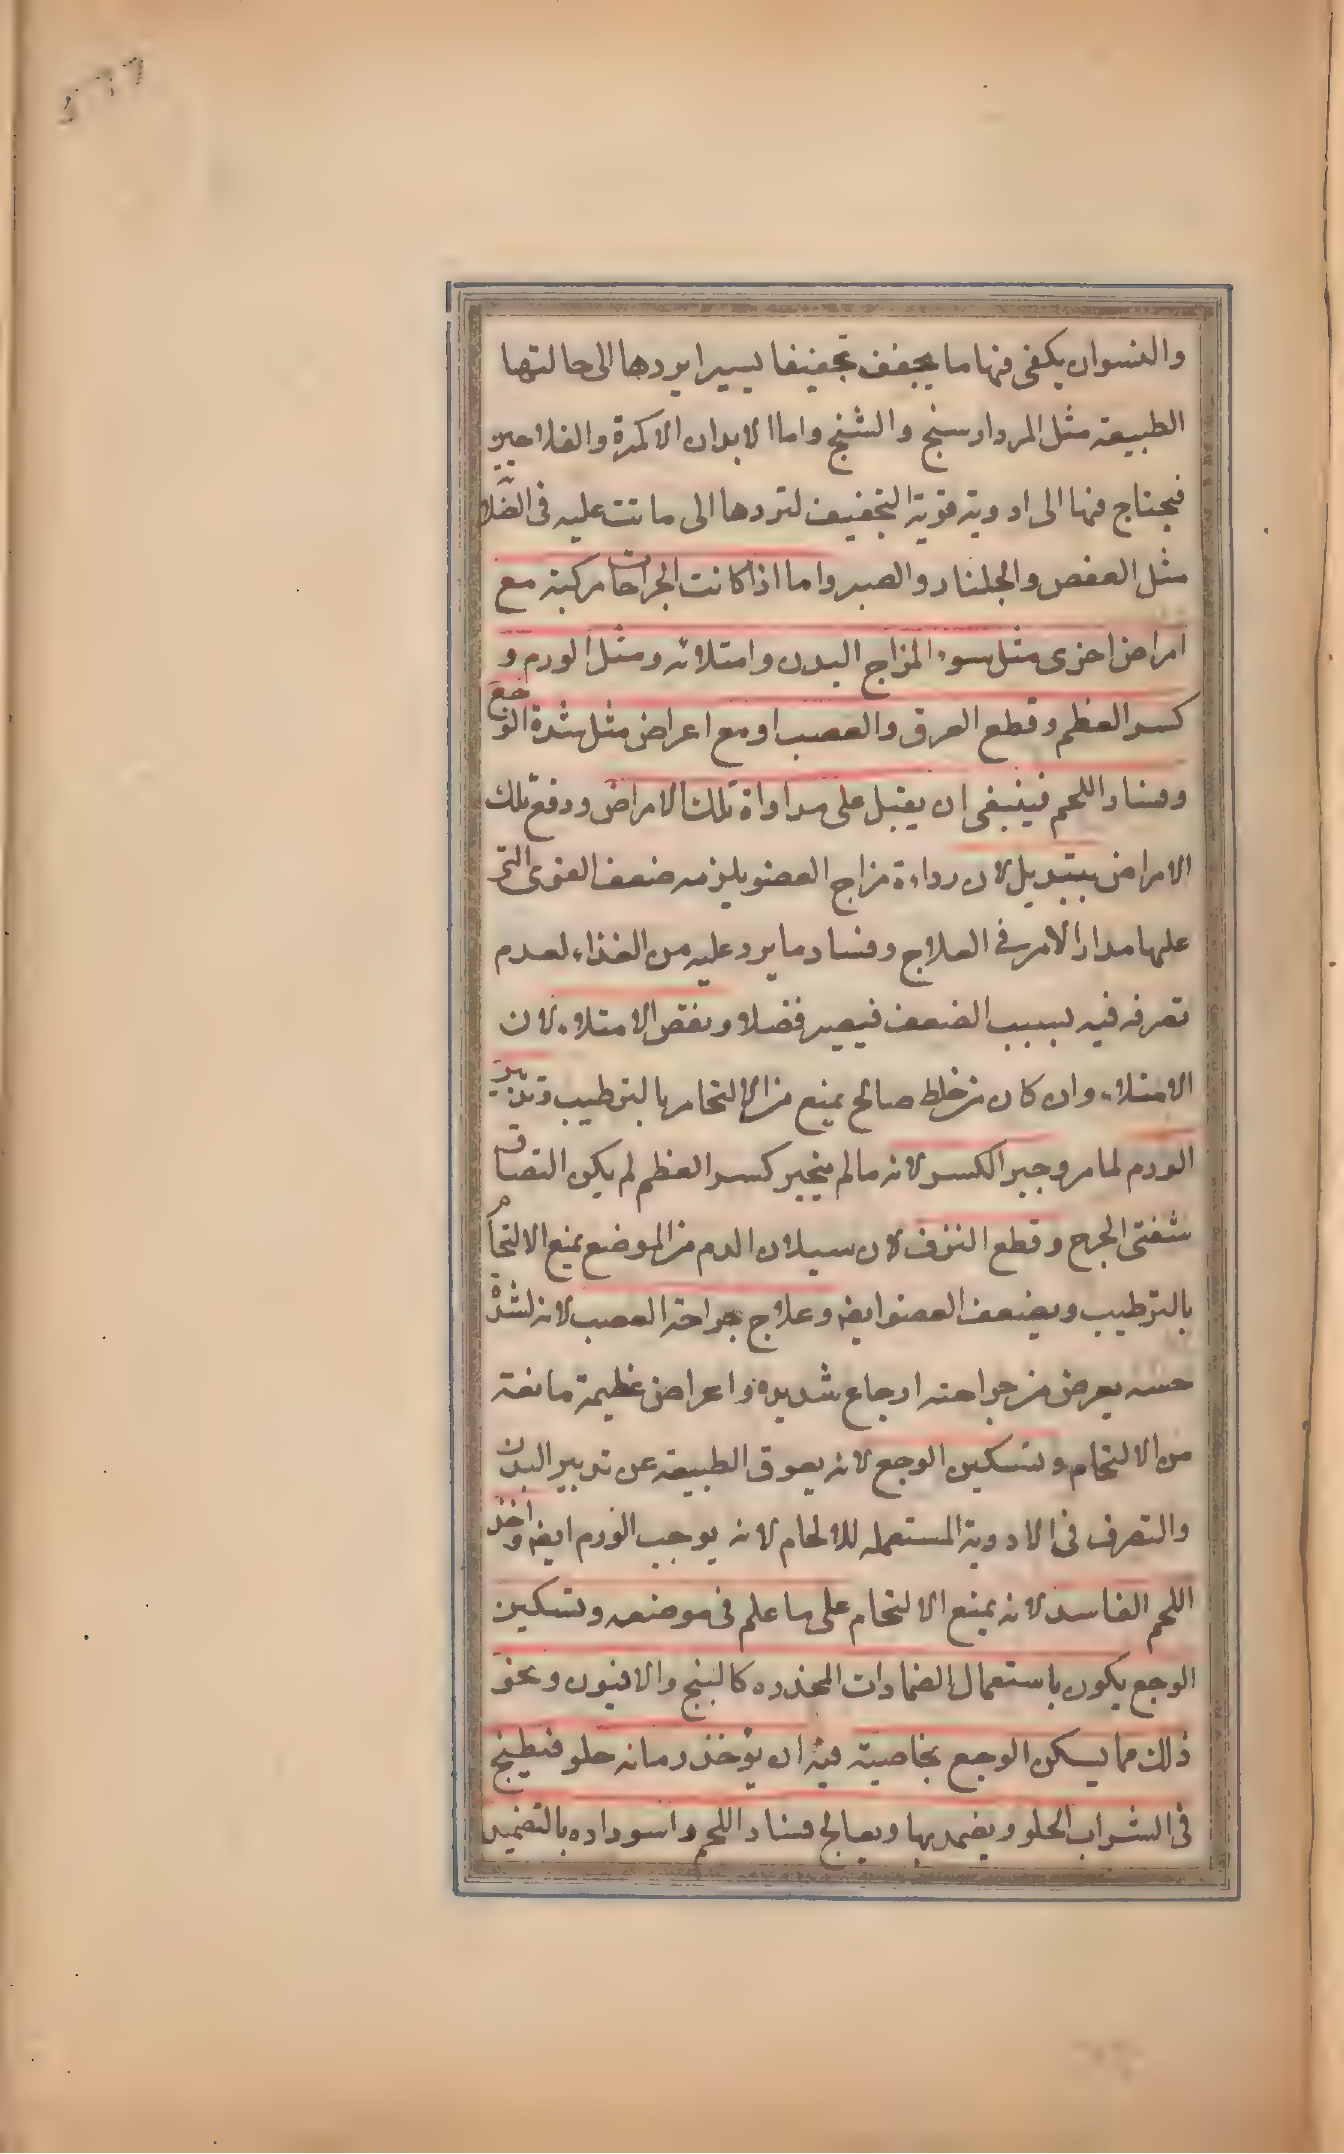 والنسوان يكفى فيها ما يجفف تجفيفا يسيرا يردها الى حالتها
الطبيعية مثل المرداسنج والشنج واما الابدان الاكرة والفلاحين
فيحتاج فيها الى ادوية قوية التجفيف لتردها الى ما تت عليه فى الصلا
مثل العفص والجلنار والصبر واما اذا كانت الجراحات مركبة مع
امراض اخرى مثل سوء المزاج البدن وامتلائه ومثل الورم و
كسر العظم وقطع العرق والعصب او مع اعراض مثل شدة الوجع
وفساد اللحم فينبغى ان يقبل على مداواة تلك الامراض ودفع تلك
الامراض بتبديل لان رداءة مزاج العضو يلزمه ضعف القوى التى
عليها مدار الامر فى العلاج وفساد ما يرد عليه من الغذاء لعدم
تصرفه فيه بسبب الضعف فيصير فضلا ونقص الامتلاء لان
الامتلاء وان كان من خلط صالح يمنع من الالتحام بالترطيب وتدبير
الورم لما مر وجبر الكسر لانه ما لم ينجبر كسر العظم لم يكن التصاق
شفتى الجرح وقطع النزف لان سيلان الدم من الموضع يمنع الالتحام
بالترطيب ويضعف العضو ايضا وعلاج جراحة العصب لانه لشدة
حسه يعرض من جراحته اوجاع شديدة واعراض عظيمة مانعة
من الالتحام وتسكين الوجع لانه يعوق الطبيعة عن تدبير البدن
والتصرف فى الادوية المستعمله للالحام لانه يوجب الورم ايضا واخذ
اللحم الفاسد لانه يمنع الالتحام على ما علم فى موضعه وتسكين
الوجع يكون باستعمال الضمادات المخدره كالبنج والافيون ونحو
ذلك مما يسكن الوجع بخاصية فيه ان يؤخذ رمانه حلو فتطبخ
فى الشراب الحلو ويضمد بها ويعالج فساد اللحم واسوداده بالتضميد